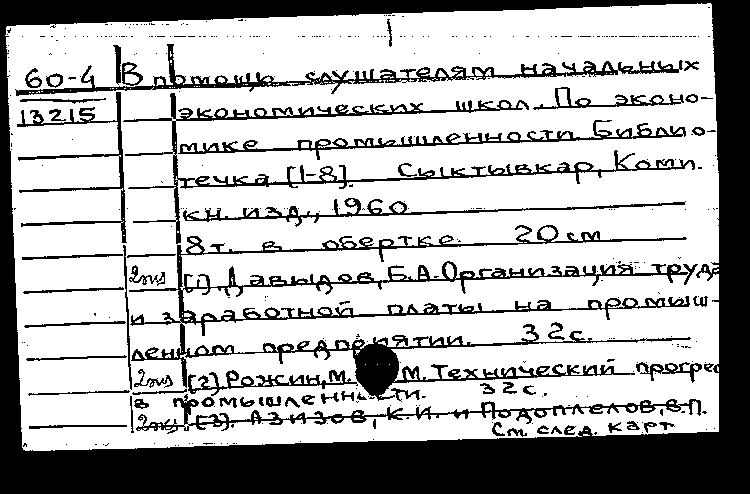 60-4 В помощь слушателям начальных
13215 экономических школ. По эконо-
мике промышленности. Библио-
течка [1-8]. Сыктывкар, Коми.
кн. изд., 1960
8 т. в обертке. 20 см
2 экз [1]. Давыдов, Б.А. Организация труда
и заработной платы на промыш-
ленном предприятии. 32 с.
2 экз [2] Рожин, М. М. Технический прогрес
в промышленности. 32 с.
2 экз. [3]. Азизов, К.И. и Подоплелов, В.П.
См. след. карт